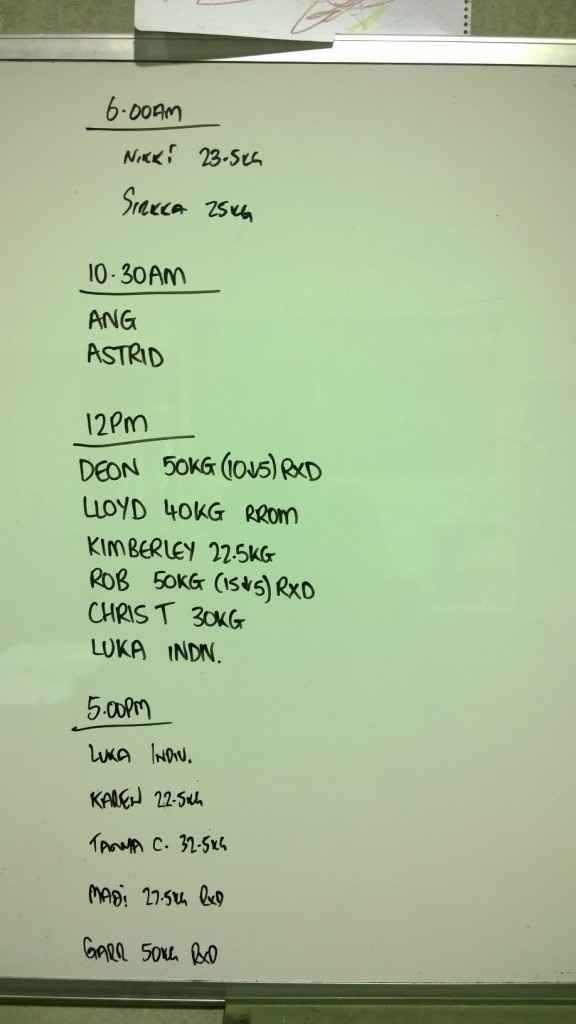 6.00AM
NIKKi 23.5KG
SIRKKA 25KG
10.30AM
ANG
ASTRID
12PM
DEON 50KG (10↓5) RXD
LLOYD 40KG RROM
KIMBERLEY 22.5KG
ROB 50KG (15↓5) RXD
CHRIS T 30KG
LUKA INDN.
5.00PM
LUKA INDIV.
KAREN 22.5KG
C. 32.5KG
MADi 27.5KG RXD
GARR 50KG RXD